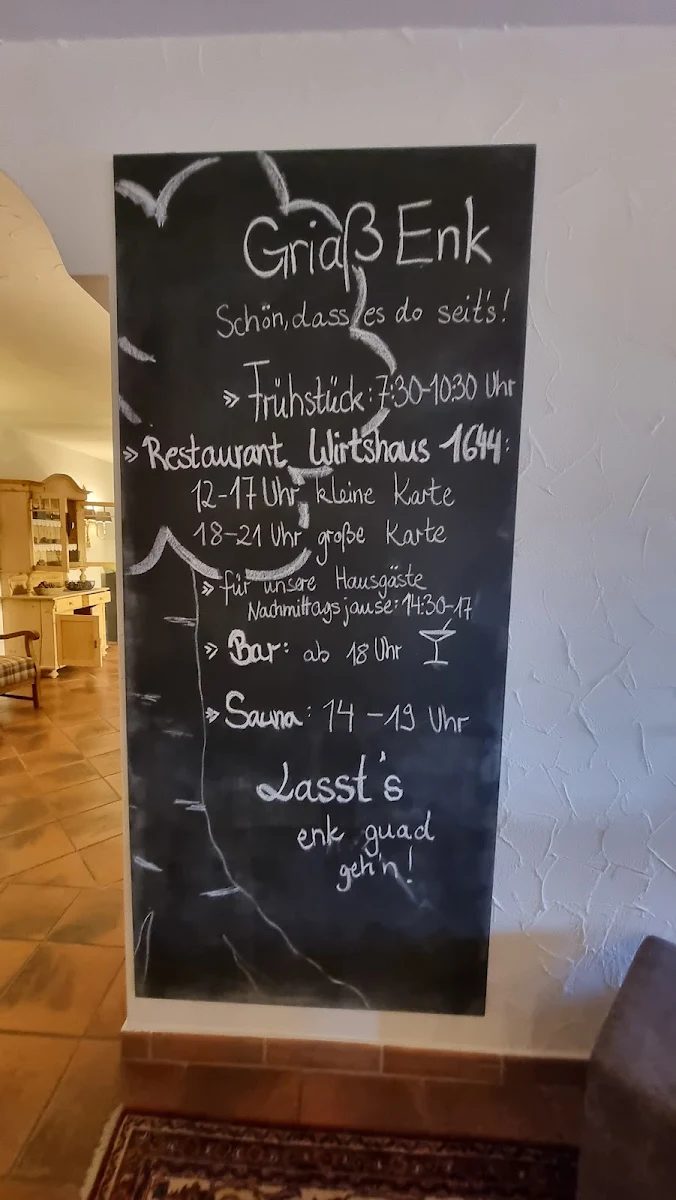 Griaß Enk
Schön, dass es do seit's!
» Frühstück: 7:30-10:30 Uhr
» Restaurant Wirtshaus 1644:
12-17 Uhr kleine Karte
18-21 Uhr große Karte
» für unsere Hausgäste
Nachmittagsjause: 14:30-17
» Bar: ab 18 Uhr
» Sauna: 14-19 Uhr
Lasst's
enk guad
geh'n!